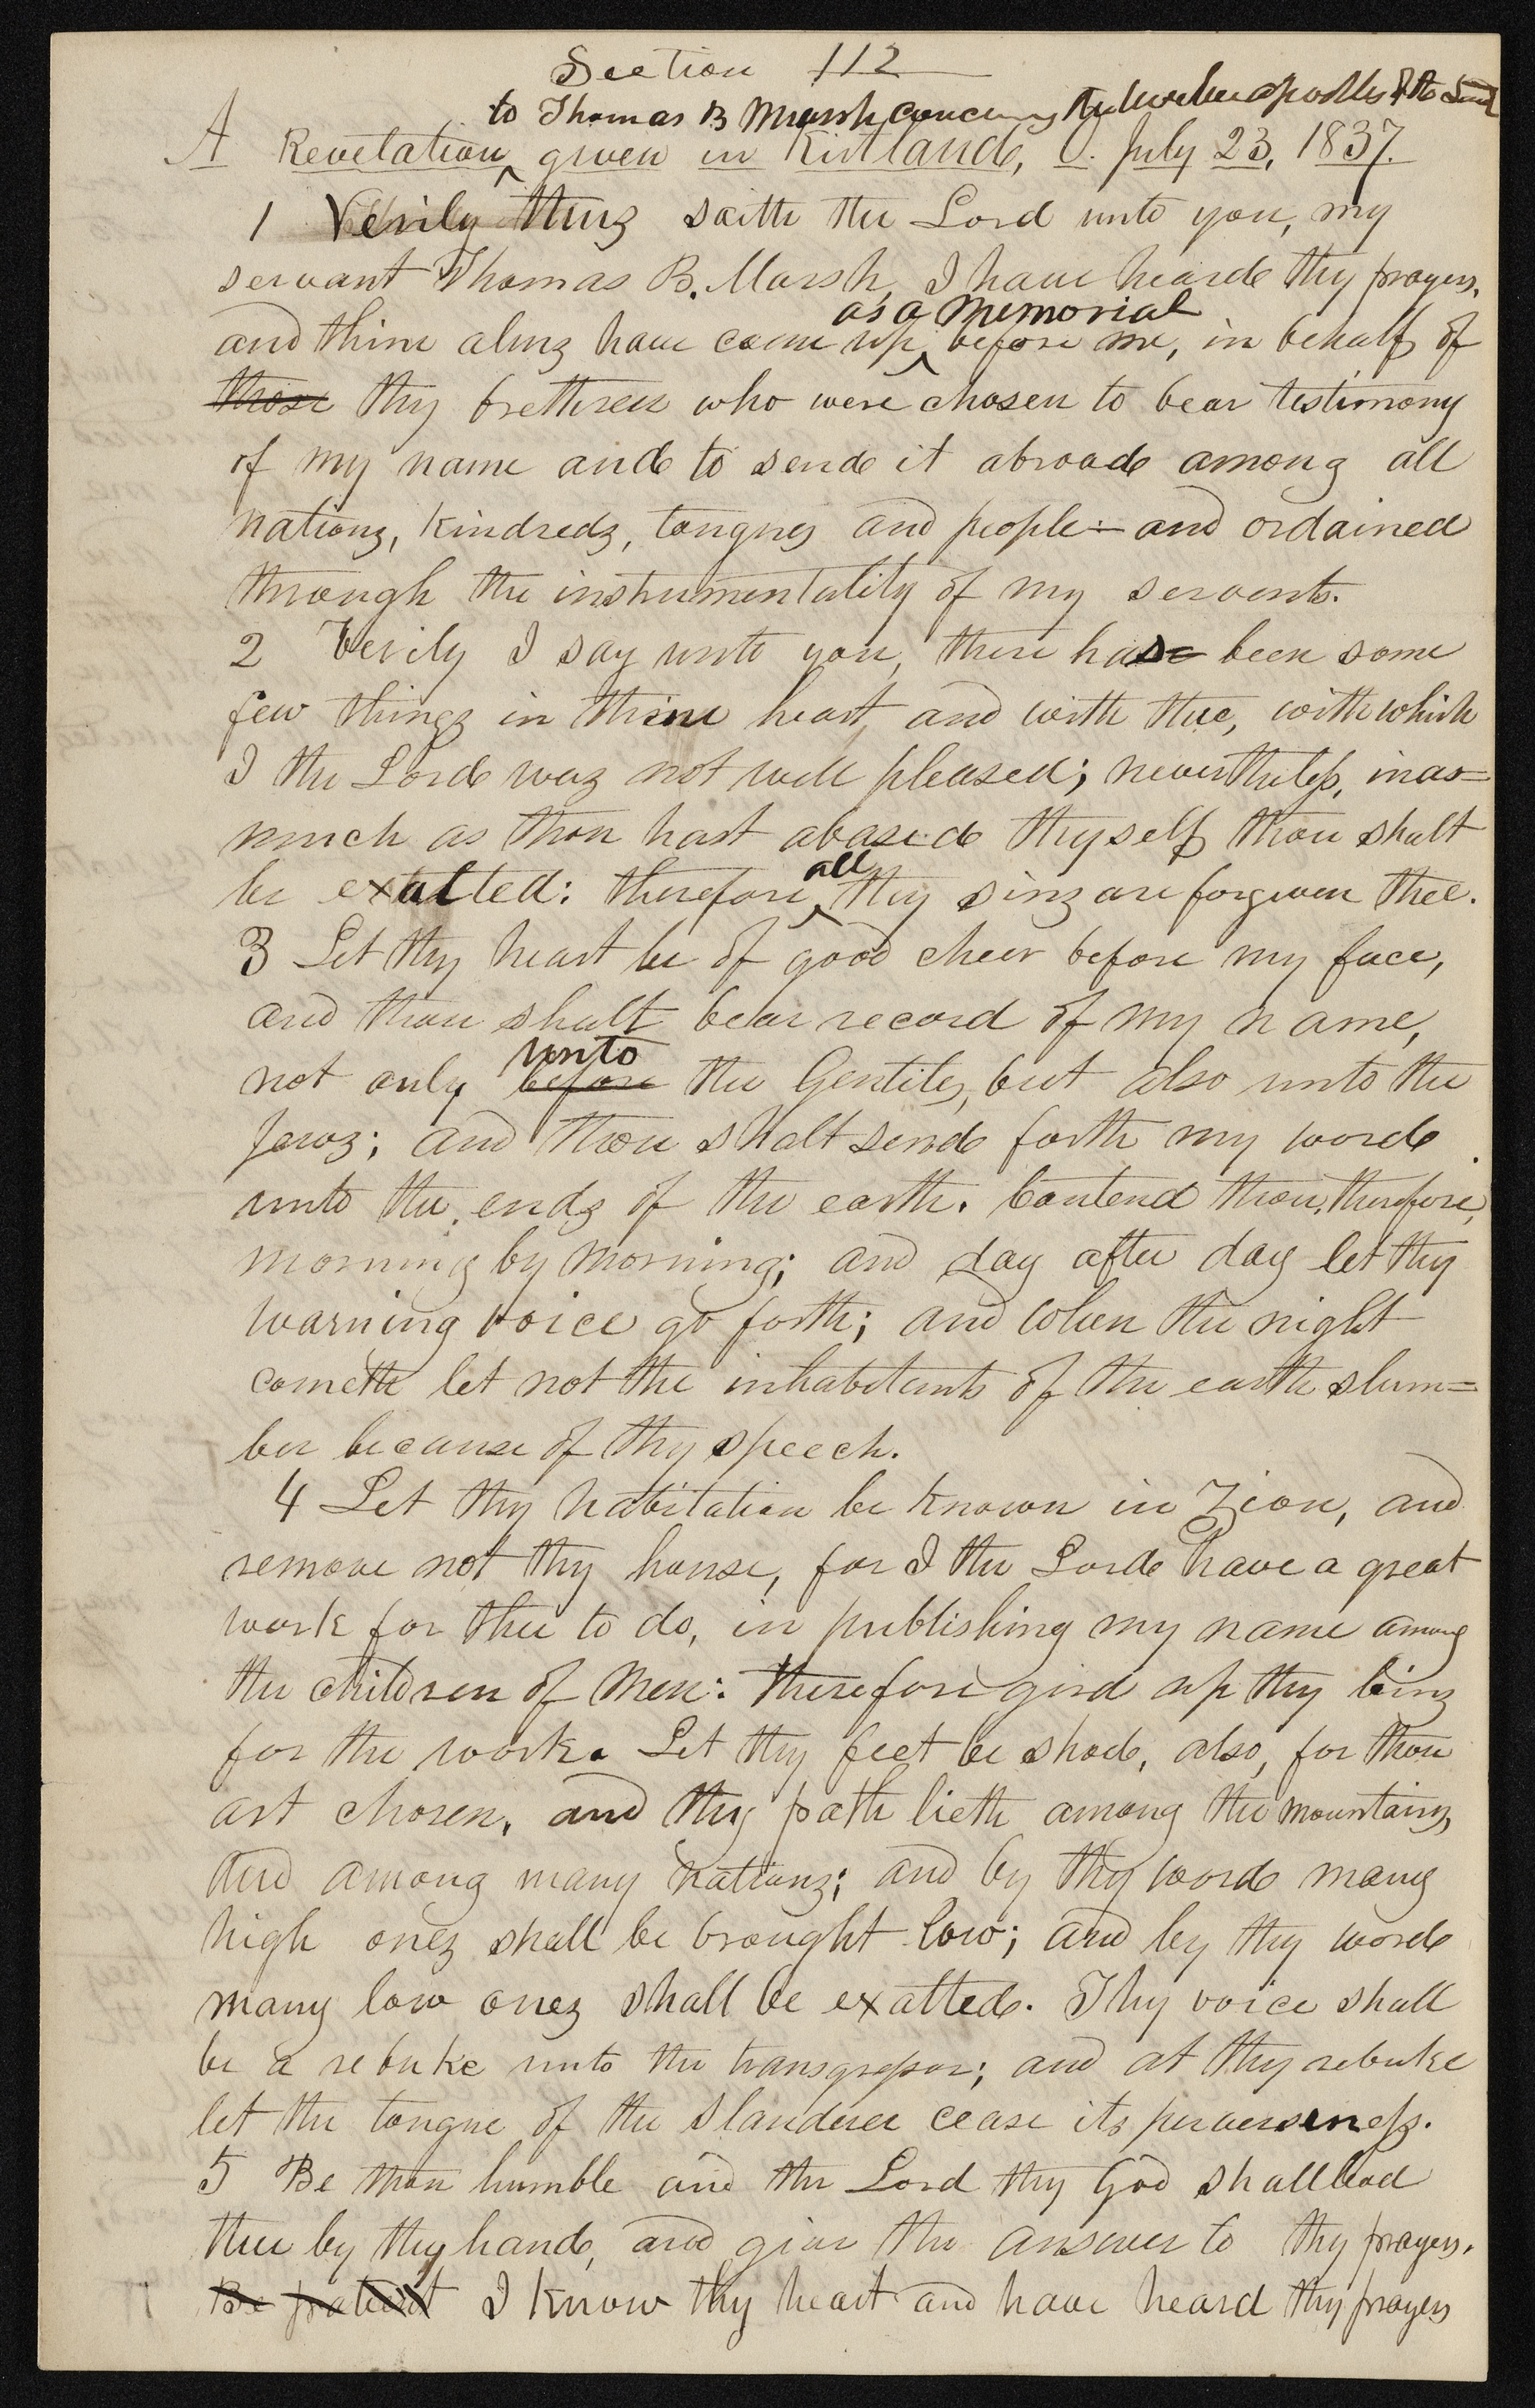 Section 112
to Thomas B Marsh, concerning the twelve apostles of the Lamb
A Revelation given in Kirtland, O. July 23, 1837.
1 Verily thus saith the Lord unto you, my
servant Thomas B. Marsh, I have heard thy prayers,
as a memorial
and thine alms have come up before me, in behalf of
those thy brethren who were chosen to bear testimony
of my name and to send it abroad among all
nations, kindreds, tongues and people:— and ordained
through the instrumentality of my servants.
2 Verily I say unto you, there has been some
few things in thine heart, and with thee, with which
I the Lord was not well pleased; nevertheless, inas=
much as thou hast abased thyself thou shalt
all
be exalted: therefore, thy sins are forgiven thee.
3 Let thy heart be of good cheer before my face,
and thou shalt bear record of my name,
unto
not only before the Gentiles, but also unto the
Jews; and thou shalt send forth my word
unto the ends of the earth. Contend thou, therefore,
morning by morning; and day after day let thy
warning voice go forth; and when the night
cometh let not the inhabitants of the earth slum=
ber because of thy speech.
4 Let thy habitation be known in Zion, and
remove not thy house, for I the Lord have a great
work for thee to do, in publishing my name among
the children of men: therefore gird up thy loins
for the work. Let thy feet be shod, also, for thou
art chosen, and thy path lieth among the mountains,
and among many nations; and by thy word many
high ones shall be brought low; and by thy word
many low ones shall be exalted. Thy voice shall
be a rebuke unto the transgressor; and at thy rebuke
let the tongue of the slanderer cease its perverseness.
5 Be thou humble and the Lord thy God shall lead
thee by thy hand, and give thee answer to thy prayers.
Be patient I know thy heart and have heard thy prayers